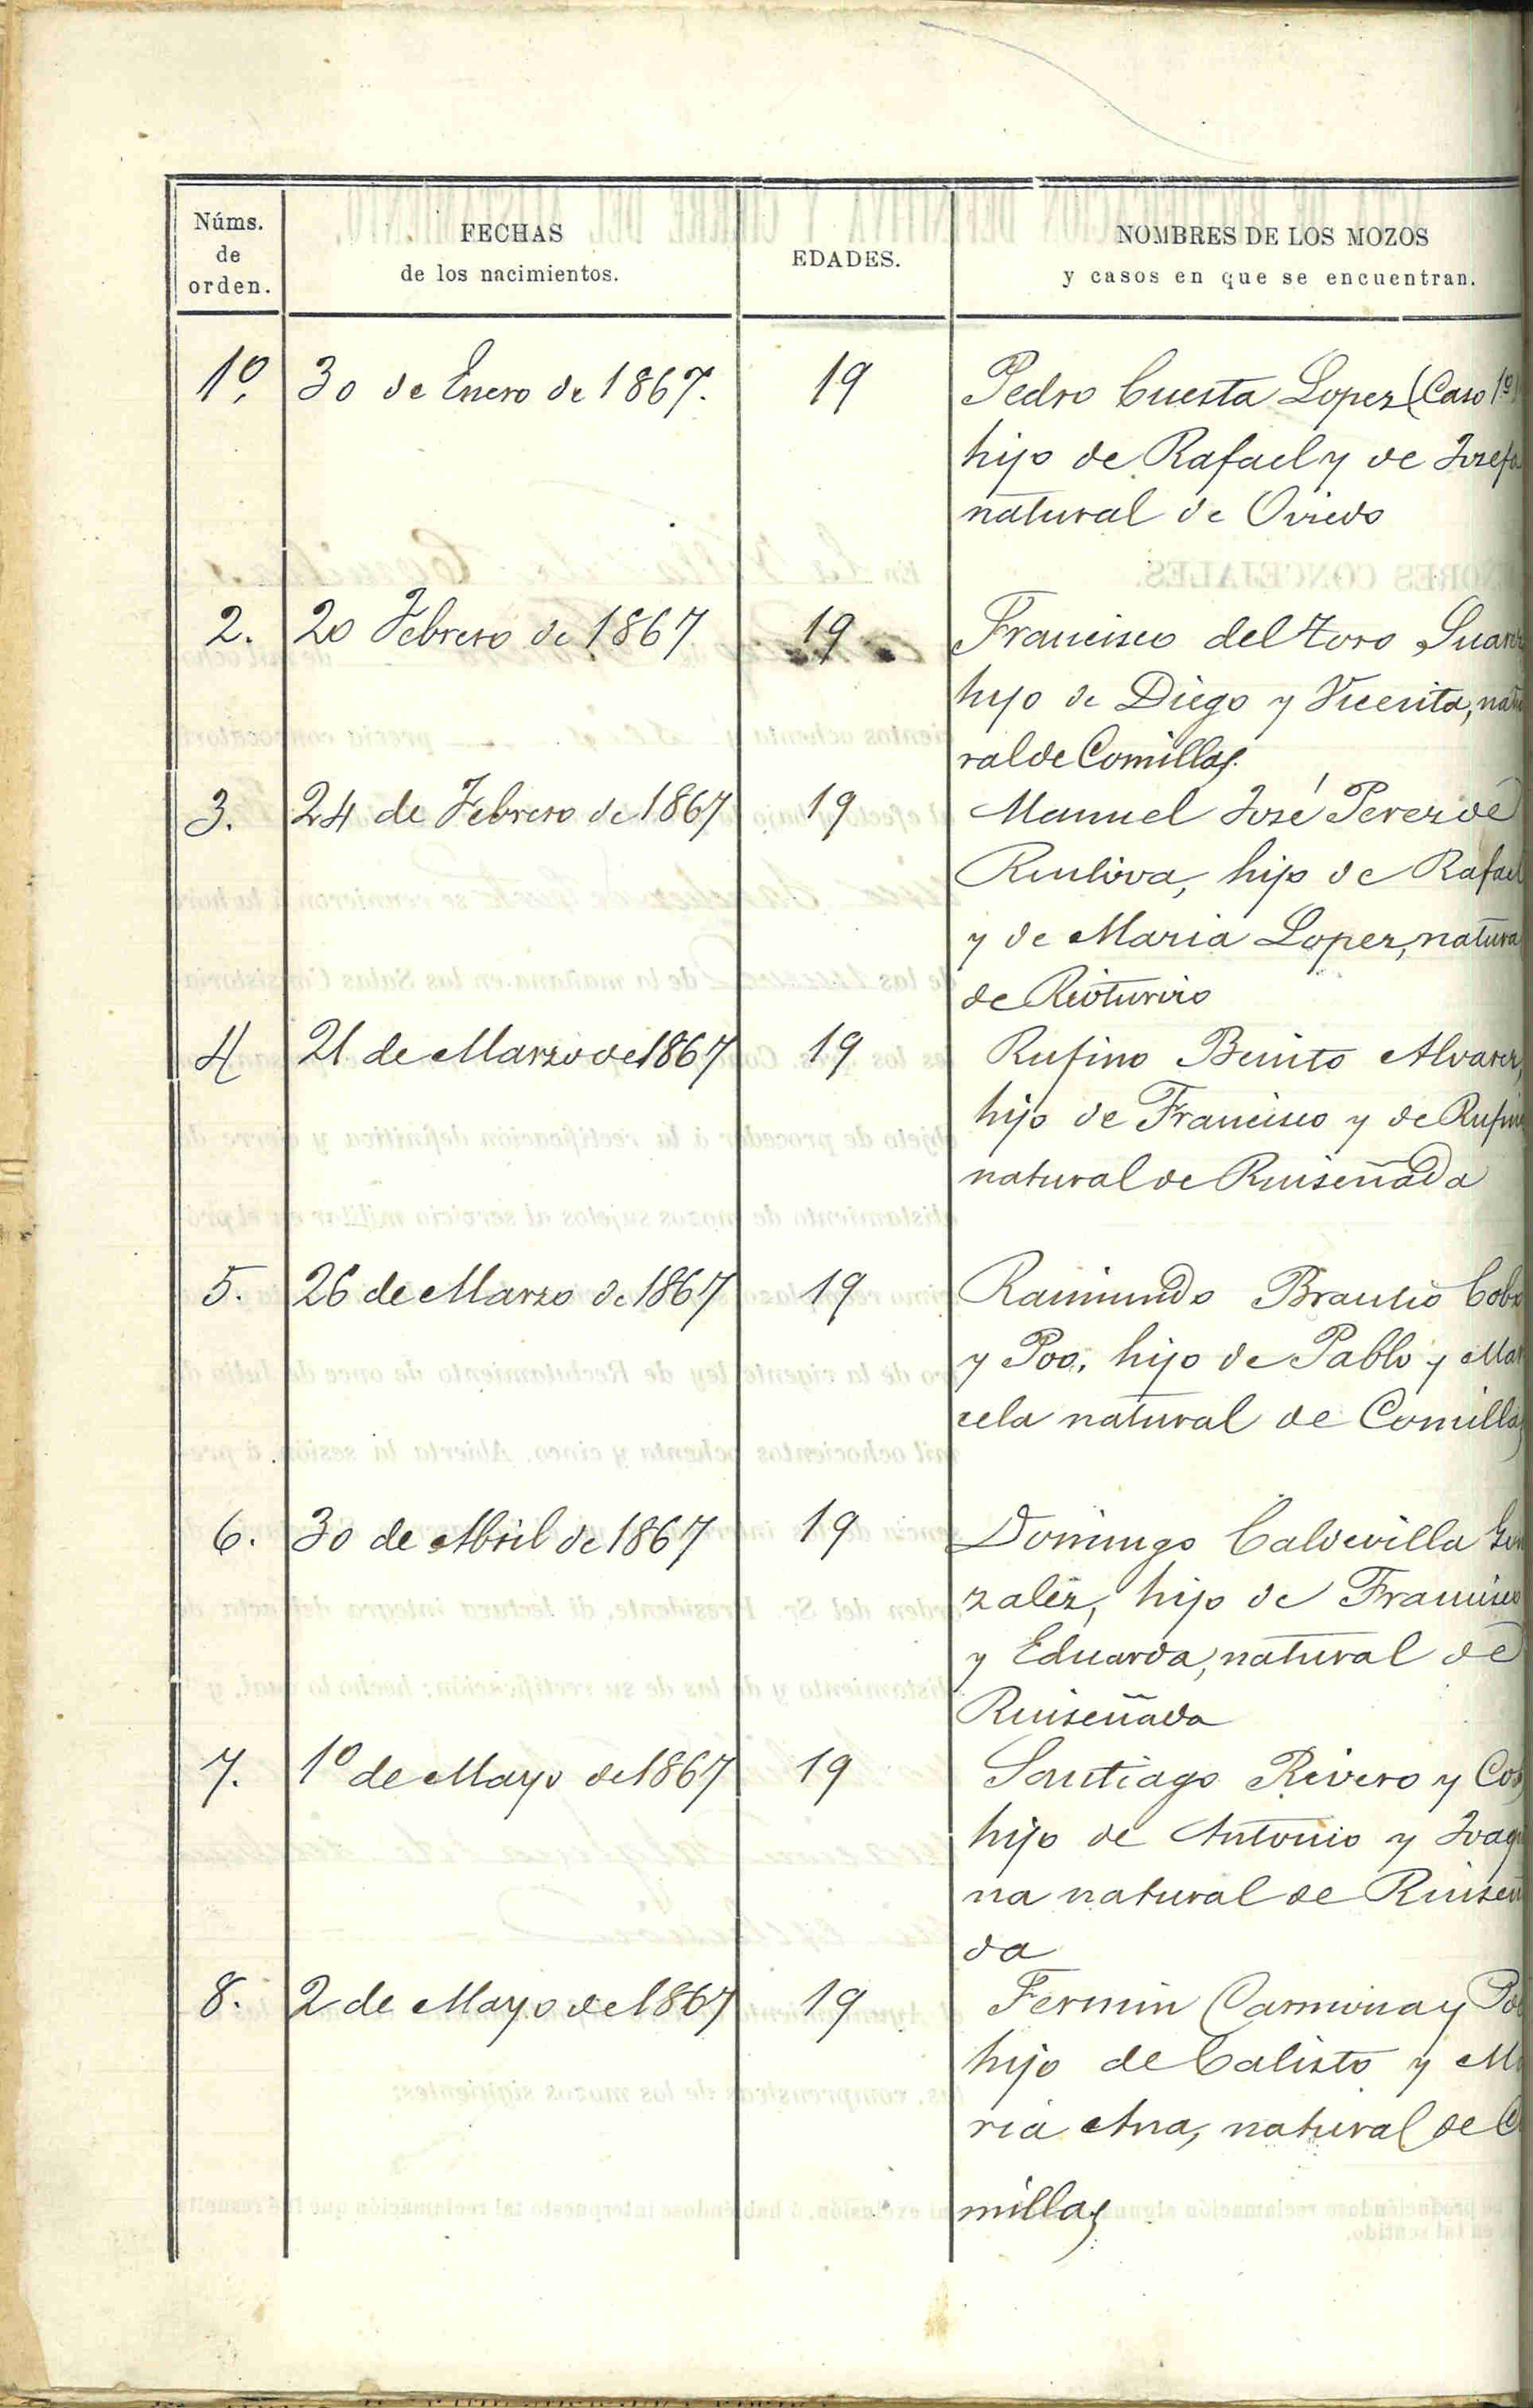 Núms.
de
orden.
FECHAS
de los nacimientos.
EDADES.
NOMBRES DE LOS MOZOS
y casos en que se encuentran.
1º. 30 de Enero de 1867. 19 Pedro Cuesta Lopez (Caso 1º)
hijo de Rafael y de Josefa
natural de Oviedo
2. 20 Febrero de 1867 19 Francisco del Toro Suarez
hijo de Diego y Vicenta, natu
ral de Comillas.
3. 24 de Febrero de 1867 19 Manuel José Perez de
hijo de Rafael
y de Maria Lopez, natural
de Rioturvio
4 21 de Marzo de 1867 19 Rufino Benito Alvarez,
hijo de Francisco y de Rufina
natural de Ruiseñada
5. 26 de Marzo de 1867 19 Raimundo Braulio Cobo
y Poo, hijo de Pablo y Mar
cela natural de Comillas
6. 30 de Abril de 1867 19 Domingo Caldevilla Gon
zalez, hijo de Francisco
y Eduarda, natural de
Ruiseñada
7. 1º de Mayo de 1867 19 Santiago Rivero y
hijo de Antonio y Joaqui
na natural de Ruiseña
da
8. 2 de Mayo de 1867 19 Fermin Carmona y
hijo de Calisto y Ma
ria Ana, natural de Co
millas